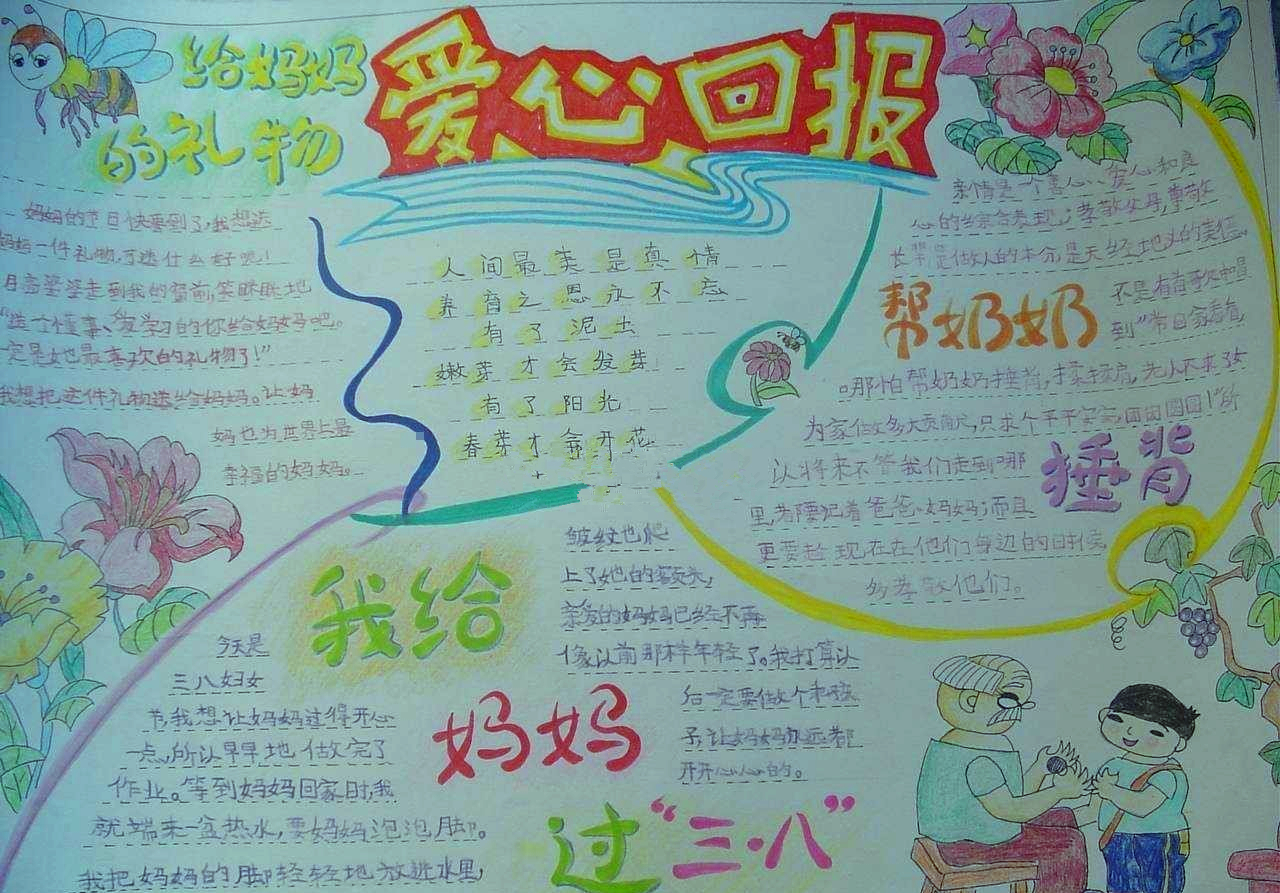 爱心回报
给妈妈
的礼物
妈妈的节日快要到了,我想送
妈妈一件礼物,可送什么好呢!
月亮婆婆走到我的窗前,笑眯眯地
一定是她最喜欢的礼物了!"
我想把这件礼物送给妈妈。让妈
妈也为世界上最
幸福的妈妈。
人间最美是真情
养育之恩永不忘
有了泥土
嫩芽才会发芽
有了阳光
春芽才会开花
亲情是一个善心、爱心和良
心的综合表现;孝敬父母,尊敬
长辈是做人的本分,是天经地义的美德。
帮奶奶
捶背
到"常回家看看
。哪怕帮奶奶捶背,揉揉肩,老人不求子女
为家做多大贡献,只求个平平安安,团团圆圆!"所
以将来不管我们走到哪
里,都要记着爸爸、妈妈;而且
更要趁现在在他们身边的时候,
多孝敬他们。
我给
妈妈
过"三·八"
今天是
三八妇女
节,我想让妈妈过得开心
一点,所以早早地做完了
作业。等到妈妈回家时,我
就端来一盆热水,要妈妈泡泡脚。
我把妈妈的脚轻轻地放进水里,
皱纹也爬
上了她的额头,
亲爱的妈妈已经不再
像以前那样年轻了。我打算以
后一定要做个乖孩
子,让妈妈永远都
开开心心的。